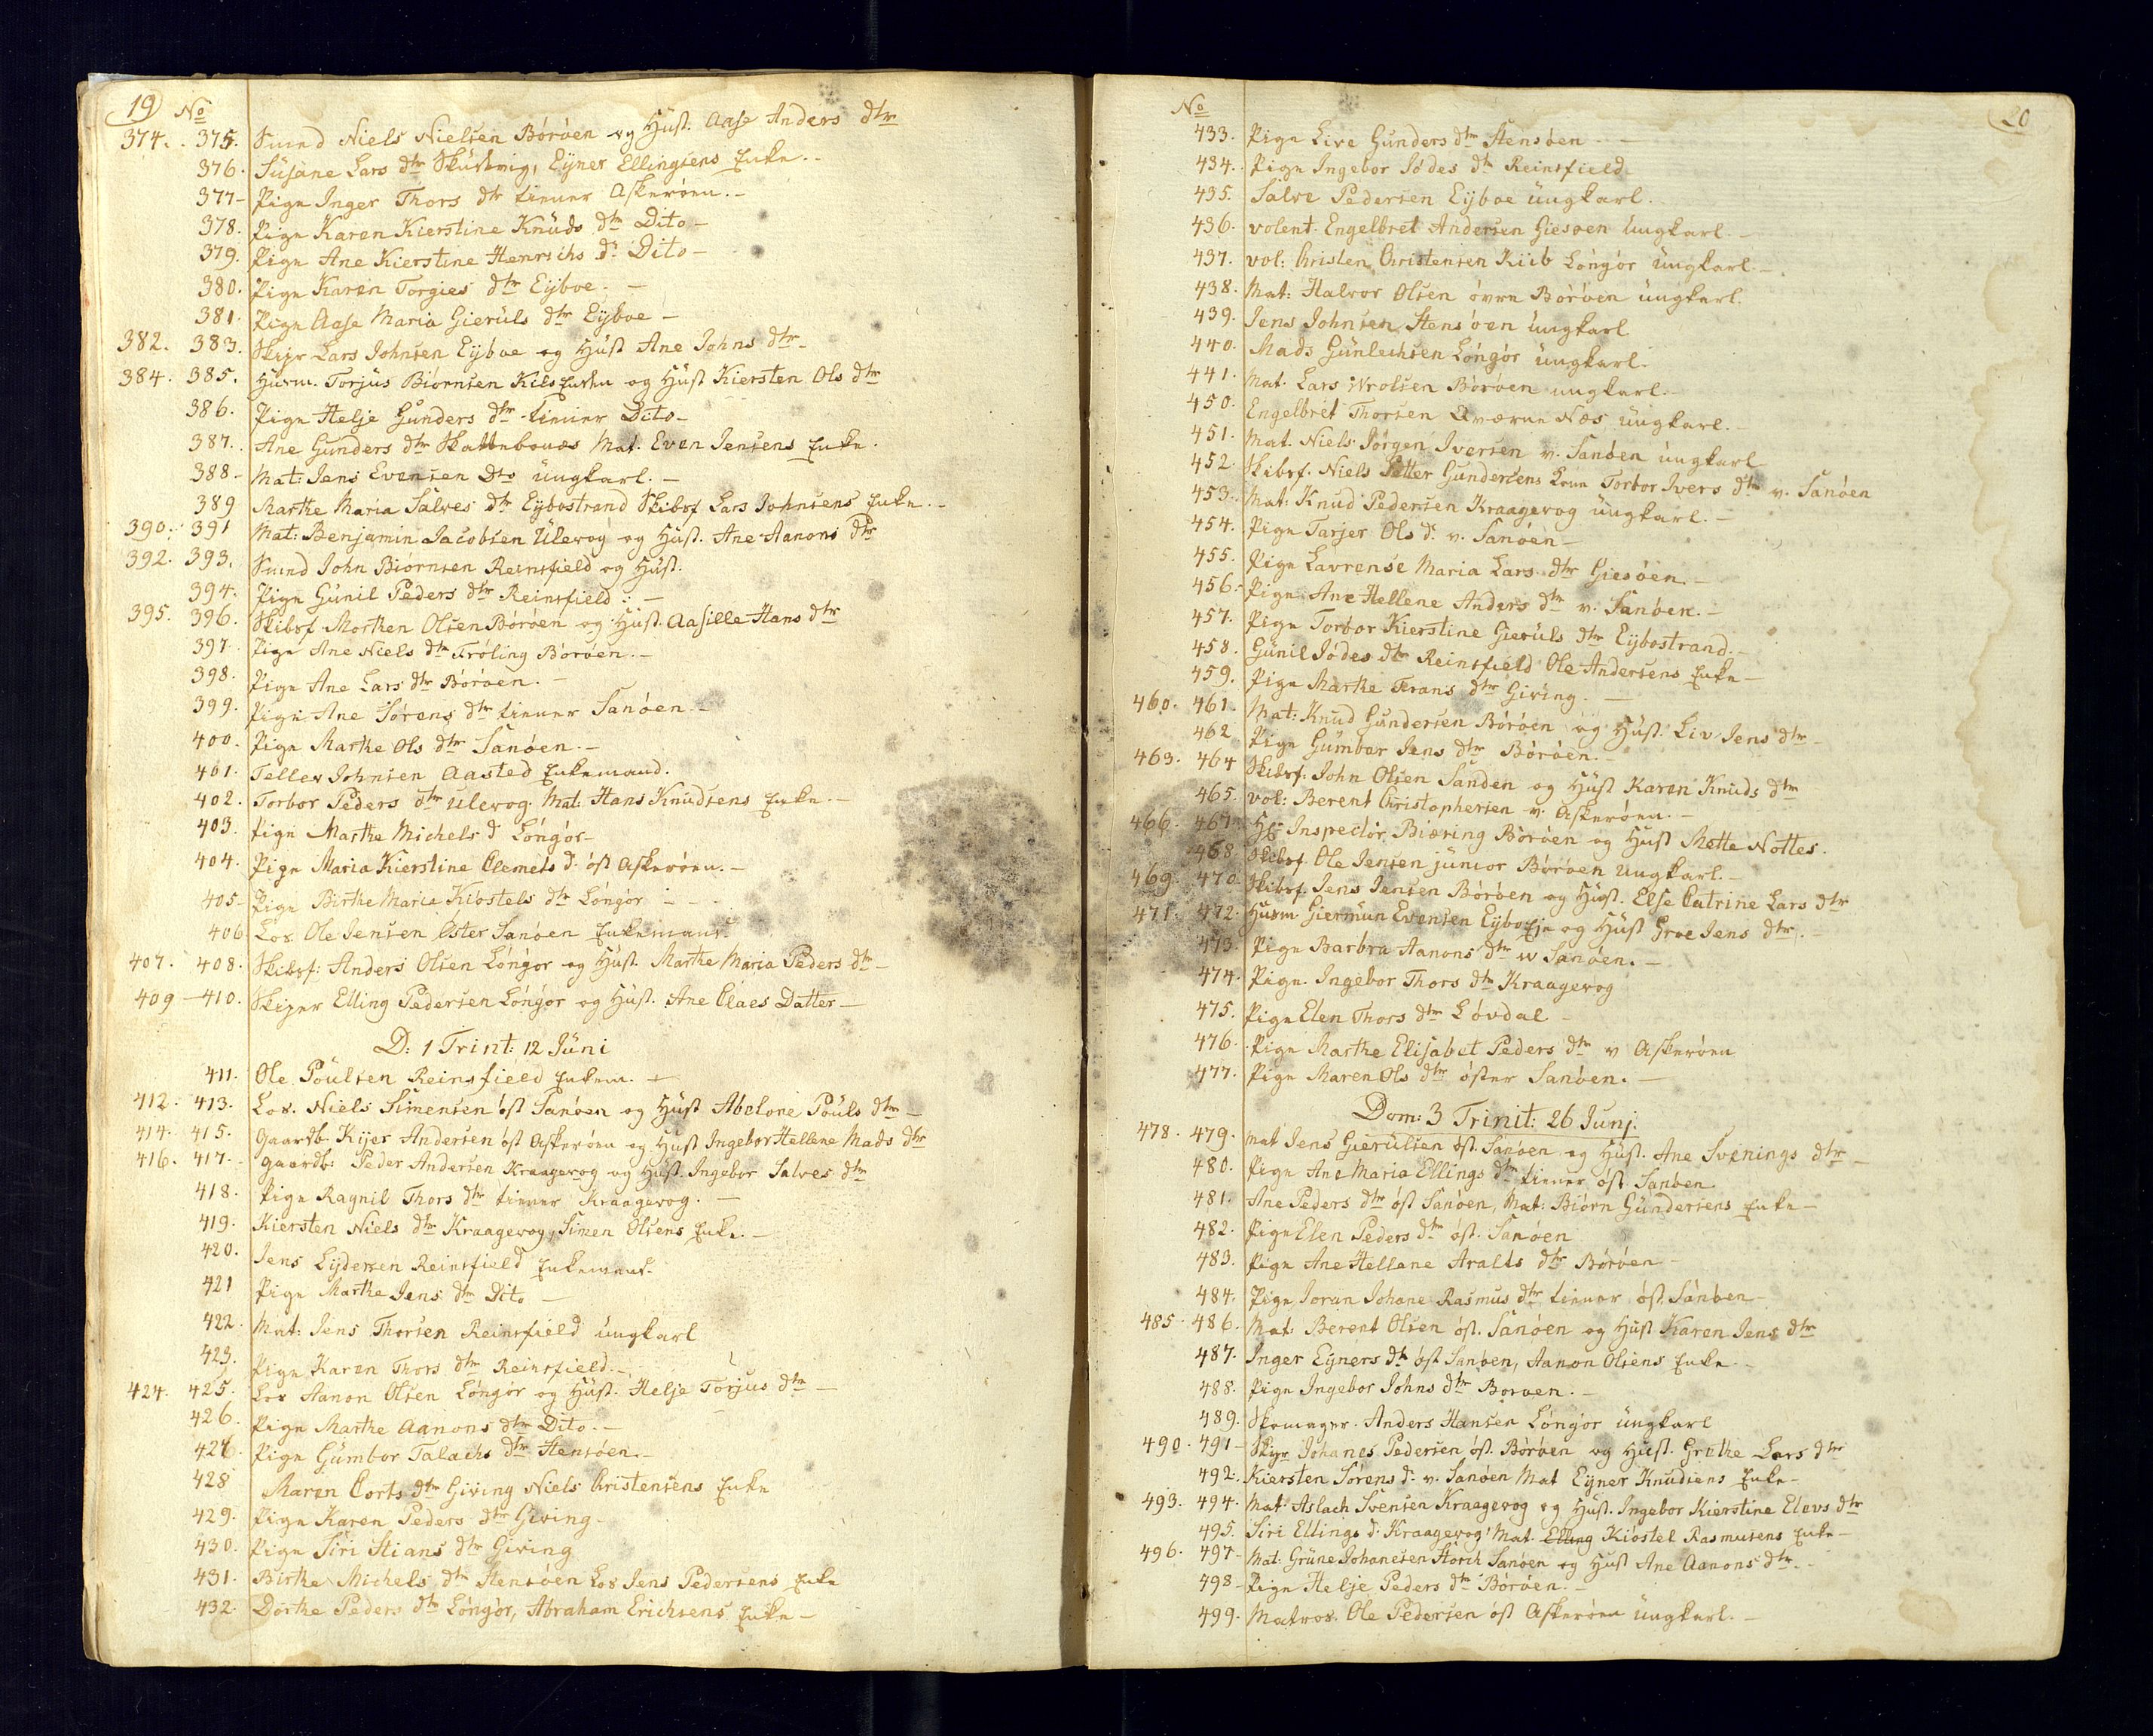 19 No
374. 375. Smed Niels Nielsen Böröen og Hust. Aase Anders dtr
376. Susane Lars dtr Eyner Ellingsens Enke.
377 Pige Inger Thors dtr tiener Askeröen.
378. Pige Karen Kierstine Knuds dtr Dito
379. Pige Ane Kierstine Henrichs dr Dito
380. Pige Karen Torgies dtr Eijboe.
381. Pige Aase Maria Gieruls dtr Eijboe
382. 383. Skipr Lars Johnsen Eijboe og Hust Ane Johns dtr
384. 385. Husm. Torjus Biörnsen og Hust Kiersten Ols dtr
386. Pige Helje Gunders dtr tiener Dito
387. Ane Gunders dtr Mat. Even Jensens Enke.
388 Mat: Jens Evensen Dto ungkarl.
389 Marthe Maria Salves dtr Eijbostrand Skibsf Lars Johnsens Enke.
390. 391 Mat: Benjamin Jacobsen Ulevog og Hust. Ane Aanons dtr
392. 393. Smed John Biörnsen Reinsfield og Hust.
394. Pige Gunil Peders dtr Reinsfield.
395. 396. Skibsf Morthen Olsen Böröen og Hust. Aasille Hans dtr
397. Pige Ane Niels dtr Fröling Böröen.
398. Pige Ane Lars dtr Böröen.
399. Pige Ane Sörens dtr tiener Sanöen.
400. Pige Marthe Ols dtr Sanöen.
401. Tellev Johnsen Aasted Enkemand.
402. Torbor Peders dtr Ulevog. Mat: Hans Knudsens Enke.
403. Pige Marthe Michels d Löngör
404. Pige Maria Kierstine Clemets d. öst Askeröen.
405 Pige Birthe Maria Kiöstels dtr Löngör
406 Los. Ole Jensen Öster Sanöen Enkemand.
407. 408. Skibsf: Anders Olsen Löngör og Hust. Marthe Maria Peders dtr
409 410. Skiper Elling Pedersen Löngör og Hust. Ane Claes Datter
D: 1 Trint: 12 Juni
411. Ole Poulsen Reinsfield Enkem.
412. 413. Los. Niels Simensen öst Sanöen og Hust Abelone Pouls dtr
414. 415. Gaardb. Kijer Andersen öst Askeröen og Hust Ingebor Hellene Mads dtr
416. 417. Gaardb: Peder Andersen Kraagevog og Hust. Ingebor Salves dtr
418. Pige Ragnil Thors dtr tiener Kraagevog.
419. Kiersten Niels dtr Kraagevog, Simen Olsens Enke.
420. Jens Lydersen Reinsfield Enkemand.
421 Pige Marthe Jens dtr Dito
422. Mat: Jens Thorsen Reinsfield ungkarl
423. Pige Karen Thors dtr Reinsfield.
424. 425. Los Aanon Olsen Löngör og Hust. Helje Torjus dtr
426. Pige Marthe Aanons dtr Dito.
427. Pige Gumbor Talachs dtr Stensöen
428 Maren Corts dtr Giving Niels Christensens Enke
429. Pige Karen Peders dtr Giving
430. Pige Siri Stians dtr Giving
431. Birthe Michels dtr Stensöen Los Jens Pedersens Enke
432. Dorthe Peders dtr Löngör, Abraham Erichsens Enke
No 20
433. Pige Live Gunders dtr Stensöen
434. Pige Ingebor Jödes dtr Reinsfield
435. Salve Pedersen Eijboe ungkarl.
436. volent. Engelbret Andersen Giesöen ungkarl.
437. vol: Christen Christensen Kiib Löngör ungkarl
438. Mat: Halvor Olsen övre Böröen ungkarl.
439. Jens Johnsen Stensöen ungkarl
440. Mads Gunlechsen Löngör ungkarl.
441. Mat. Lars Wrolsen Böröen ungkarl.
450. Engelbret Thorsen Qværne Næs ungkarl.
451. Mat. Niels Jörgen Iversen v. Sanöen ungkarl
452. Skibsf. Niels Petter Gundersens Kone Torbor Ivers dtr v. Sanöen
453. Mat: Knud Pedersen Kraagevog ungkarl.
454. Pige Tarjer Ols d. v. Sanöen
455. Pige Lavrense Maria Lars dtr Giesöen.
456. Pige Ane Hellene Anders dtr v. Sanöen.
457. Pige Torbor Kierstine Gieruls dtr Eijbostrand.
458. Gunil Jödes dtr Reinsfield Ole Andersens Enke
459. Pige Marthe Frans dtr Giving.
460. 461. Mat: Knud Gundersen Böröen og Hust. Liv Jens dtr
462 Pige Gumbor Jens dtr Böröen.
463. 464 Skibsf: John Olsen Sanden og Hust Karen Knuds dtr
465. vol: Berent Christophersen v. Askeröen.
466. 467. Hr: Inspectör Biæring Böröen og Hust Mette Nottes.
468. Skibsf. Ole Jensen junior Böröen ungkarl.
469. 470. Skibsf. Jens Jensen Böröen og Hust. Else Catrine Lars dtr
471. 472. Husm Giermun Evensen Eijbo Eje og Hust Groe Jens dtr.
473. Pige Barbra Aanons dtr w Sanöen.
474. Pige. Ingebor Thors dtr Kraagevog
475. Pige Elen Thors dtr Lövdal
476. Pige Marthe Elisabet Peders dtr v Askeröen
477. Pige Maren Ols dtr öster Sanöen.
Dom: 3 Trinit: 26 Junj.
478. 479. Mat Jens Gierulsen öst. Sanöen og Hust. Ane Svenings dtr
480. Pige Ane Maria Ellings dtr tiener öst Sanöen
481. Ane Peders dtr öst Sanöen, Mat: Biörn Gundersens Enke
482. Pige Elen Peders dtr öst. Sanöen
483. Pige Ane Hellane Aralds dtr Böröen
484. Pige Joran Johane Rasmus dtr tiener öst Sanöen
485. 486. Mat: Berent Olsen öst. Sanöen og Hust Karen Jens dtr
487. Inger Eyners dtr öst Sanöen, Aanon Olsens Enke
488. Pige Ingebor Johns dtr Boroen.
489. Skomager. Anders Hansen Löngör ungkarl
490. 491 Skipr Johanes Pedersen öst. Böröen og Hust. Grethe Lars dtr
492. Kiersten Sörens d. v. Sanöen Mat Eyner Knudsens Enke
493. 494. Mat: Aslach Svensen Kraagevog og Hust. Ingebor Kierstine Elevs dtr
495. Siri Ellings d. Kraagevog, Mat. Elling Kiöstel Rasmusens Enke
496. 497 Mat: Grune Johanesen Storch Sanöen og Hust Ane Aanons dtr.
498 Pige Helje Peders dtr Böröen.
499. Matros. Ole Pedersen öst Askeröen ungkarl.